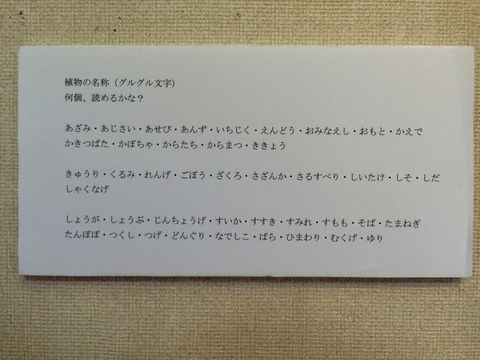 植物の名称（グルグル文字）
何個、読めるかな？
あざみ・あじさい・あせび・あんず・いちじく・えんどう・おみなえし・おもと・かえで
かきつばた・かぼちゃ・からたち・からまつ・ききょう
きゅうり・くるみ・れんげ・ごぼう・ざくろ・さざんか・さるすべり・しいたけ・しそ・しだ
しゃくなげ
しょうが・しょうぶ・じんちょうげ・すいか・すすき・すみれ・すもも・そば・たまねぎ
たんぽぽ・つくし・つげ・どんぐり・なでしこ・ばら・ひまわり・むくげ・ゆり